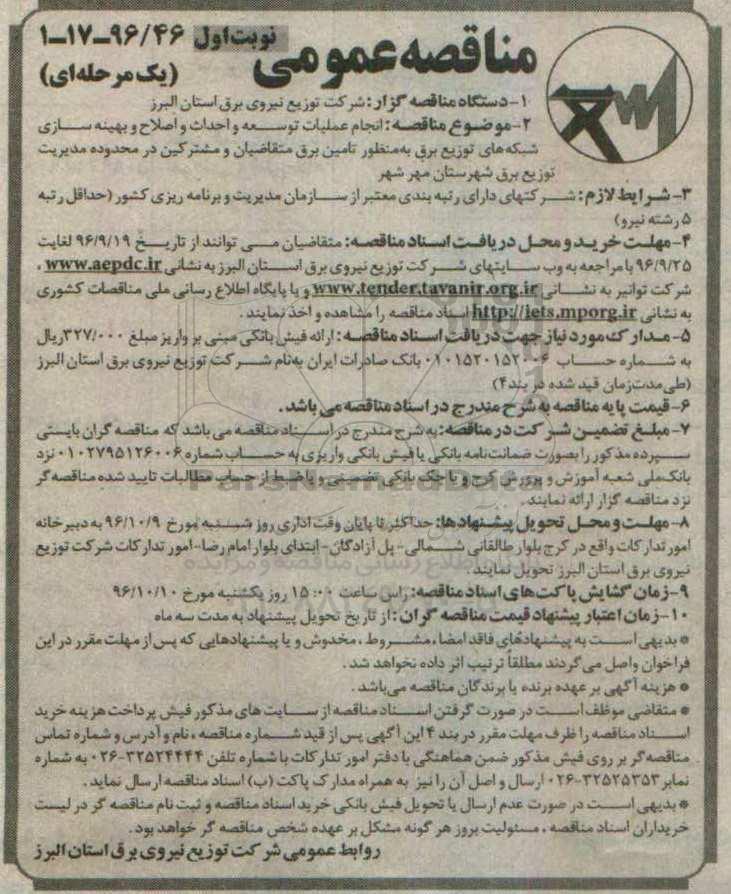 مناقصه عمومی نوبت اول ۹۶/۴۶-۱۷-۱
(یک مرحله‌ای)
۱-دستگاه مناقصه گزار: شرکت توزیع نیروی برق استان البرز
۲-موضوع مناقصه: انجام عملیات توسعه و احداث و اصلاح و بهینه سازی
شبکه‌های توزیع برق به‌منظور تامین برق متقاضیان و مشترکین در محدوده مدیریت
توزیع برق شهرستان مهر شهر
۳-شرایط لازم: شرکتهای دارای رتبه بندی معتبر از سازمان مدیریت و برنامه ریزی کشور (حداقل رتبه
۵ رشته نیرو)
۴-مهلت خرید و محل دریافت اسناد مناقصه: متقاضیان می توانند از تاریخ ۹۶/۹/۱۹ لغایت
۹۶/۹/۲۵ با مراجعه به وب سایتهای شرکت توزیع نیروی برق استان البرز به نشانی www.aepdc.ir ،
شرکت توانیر به نشانی www.tender.tavanir.org.ir و یا پایگاه اطلاع رسانی ملی مناقصات کشوری
به نشانی http://iets.mporg.ir اسناد مناقصه را مشاهده و اخذ نمایند .
۵-مدارک مورد نیاز جهت دریافت اسناد مناقصه: ارائه فیش بانکی مبنی بر واریز مبلغ ۳۲۷/۰۰۰ریال
به شماره حساب ۰۱۰۱۵۲۰۱۵۲۰۰۶ بانک صادرات ایران به‌نام شرکت توزیع نیروی برق استان البرز
(طی مدت‌زمان قید شده در بند۴)
۶-قیمت پایه مناقصه به شرح مندرج در اسناد مناقصه می باشد .
۷-مبلغ تضمین شرکت در مناقصه: به شرح مندرج در اسناد مناقصه می باشد که مناقصه گران بایستی
سپرده مذکور را بصورت ضمانت‌نامه بانکی یا فیش بانکی واریزی به حساب شماره ۰۱۰۲۷۹۵۱۲۶۰۰۶ نزد
بانک‌ملی شعبه آموزش و پرورش کرج و یا چک بانکی تضمینی و یا ضبط از حساب مطالبات تایید شده مناقصه‌گر
نزد مناقصه گزار ارائه نمایند.
۸-مهلت و محل تحویل پیشنهادها: حداکثر تا پایان وقت اداری روز شنبه مورخ ۹۶/۱۰/۹ به دبیرخانه
امور تدارکات واقع در کرج بلوار طالقانی شمالی- پل آزادگان- ابتدای بلوار امام رضا- امور تدارکات شرکت توزیع
نیروی برق استان البرز تحویل نمایند.
۹-زمان گشایش پاکت‌های اسناد مناقصه: راس ساعت ۱۵:۰۰ روز یکشنبه مورخ ۹۶/۱۰/۱۰
۱۰-زمان اعتبار پیشنهاد قیمت مناقصه گران: از تاریخ تحویل پیشنهاد به مدت سه ماه
* بدیهی است به پیشنهادهای فاقد امضا، مشروط ، مخدوش و یا پیشنهادهایی که پس از مهلت مقرر در این
فراخوان واصل می گردند مطلقاً ترتیب اثر داده نخواهد شد .
* هزینه آگهی بر عهده برنده یا برندگان مناقصه می‌باشد .
* متقاضی موظف است در صورت گرفتن اسناد مناقصه از سایت های مذکور فیش پرداخت هزینه خرید
اسناد مناقصه را ظرف مهلت مقرر در بند ۴ این آگهی پس از قید شماره مناقصه ، نام و آدرس و شماره تماس
مناقصه‌گر بر روی فیش مذکور ضمن هماهنگی با دفتر امور تدارکات با شماره تلفن ۳۲۵۲۴۴۴۴-۰۲۶ به شماره
نمابر ۳۲۵۲۵۳۵۳-۰۲۶ ارسال و اصل آن را نیز به همراه مدارک پاکت (ب) اسناد مناقصه ارسال نماید .
* بدیهی است در صورت عدم ارسال یا تحویل فیش بانکی خرید اسناد مناقصه و ثبت نام مناقصه گر در لیست
خریداران اسناد مناقصه ، مسئولیت بروز هر گونه مشکل بر عهده شخص مناقصه گر خواهد بود .
روابط عمومی شرکت توزیع نیروی برق استان البرز
ParsNamadData